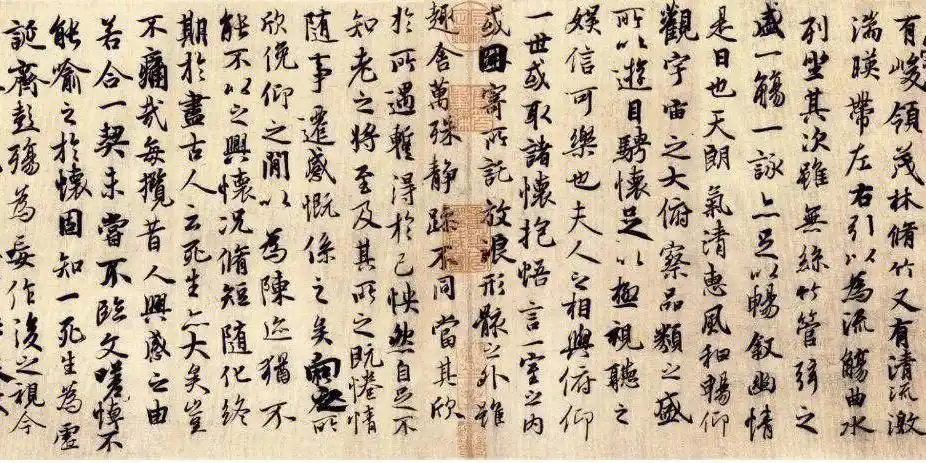 有峻領茂林脩竹又有清流激
湍暎帶左右引以為流觴曲水
列坐其次雖無絲竹管弦之
盛一觴一詠亦足以暢敘幽情
是日也天朗氣清惠風和暢仰
觀宇宙之大俯察品類之盛
所以遊目騁懷足以極視聽之
娛信可樂也夫人之相與俯仰
一世或取諸懷抱悟言一室之內
或因寄所託放浪形骸之外雖
趣舍萬殊靜躁不同當其欣
於所遇暫得於己怏然自足不
知老之將至及其所之既惓情
隨事遷感慨係之矣向之所
欣俛仰之閒以為陳迹猶不
能不以之興懷況脩短隨化終
期於盡古人云死生亦大矣豈
不痛哉每攬昔人興感之由
若合一契未嘗不臨文嗟悼不
能喻之於懷固知一死生為虛
誕齊彭殤為妄作後之視今